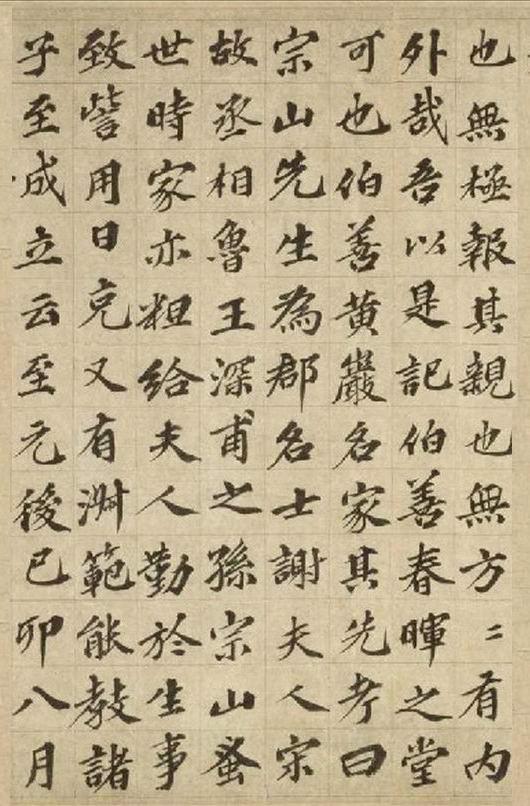 也無極報其親也無方二有内
外哉吾以是記伯善春暉之堂
可也伯善黄巖名家其先考曰
宗山先生為郡名士謝夫人宋
故丞相魯王深甫之孫宗山蚤
世時家亦粗給夫人勤於生事
致訾用日克又有淑範能教諸
子至成立云至元後己卯八月